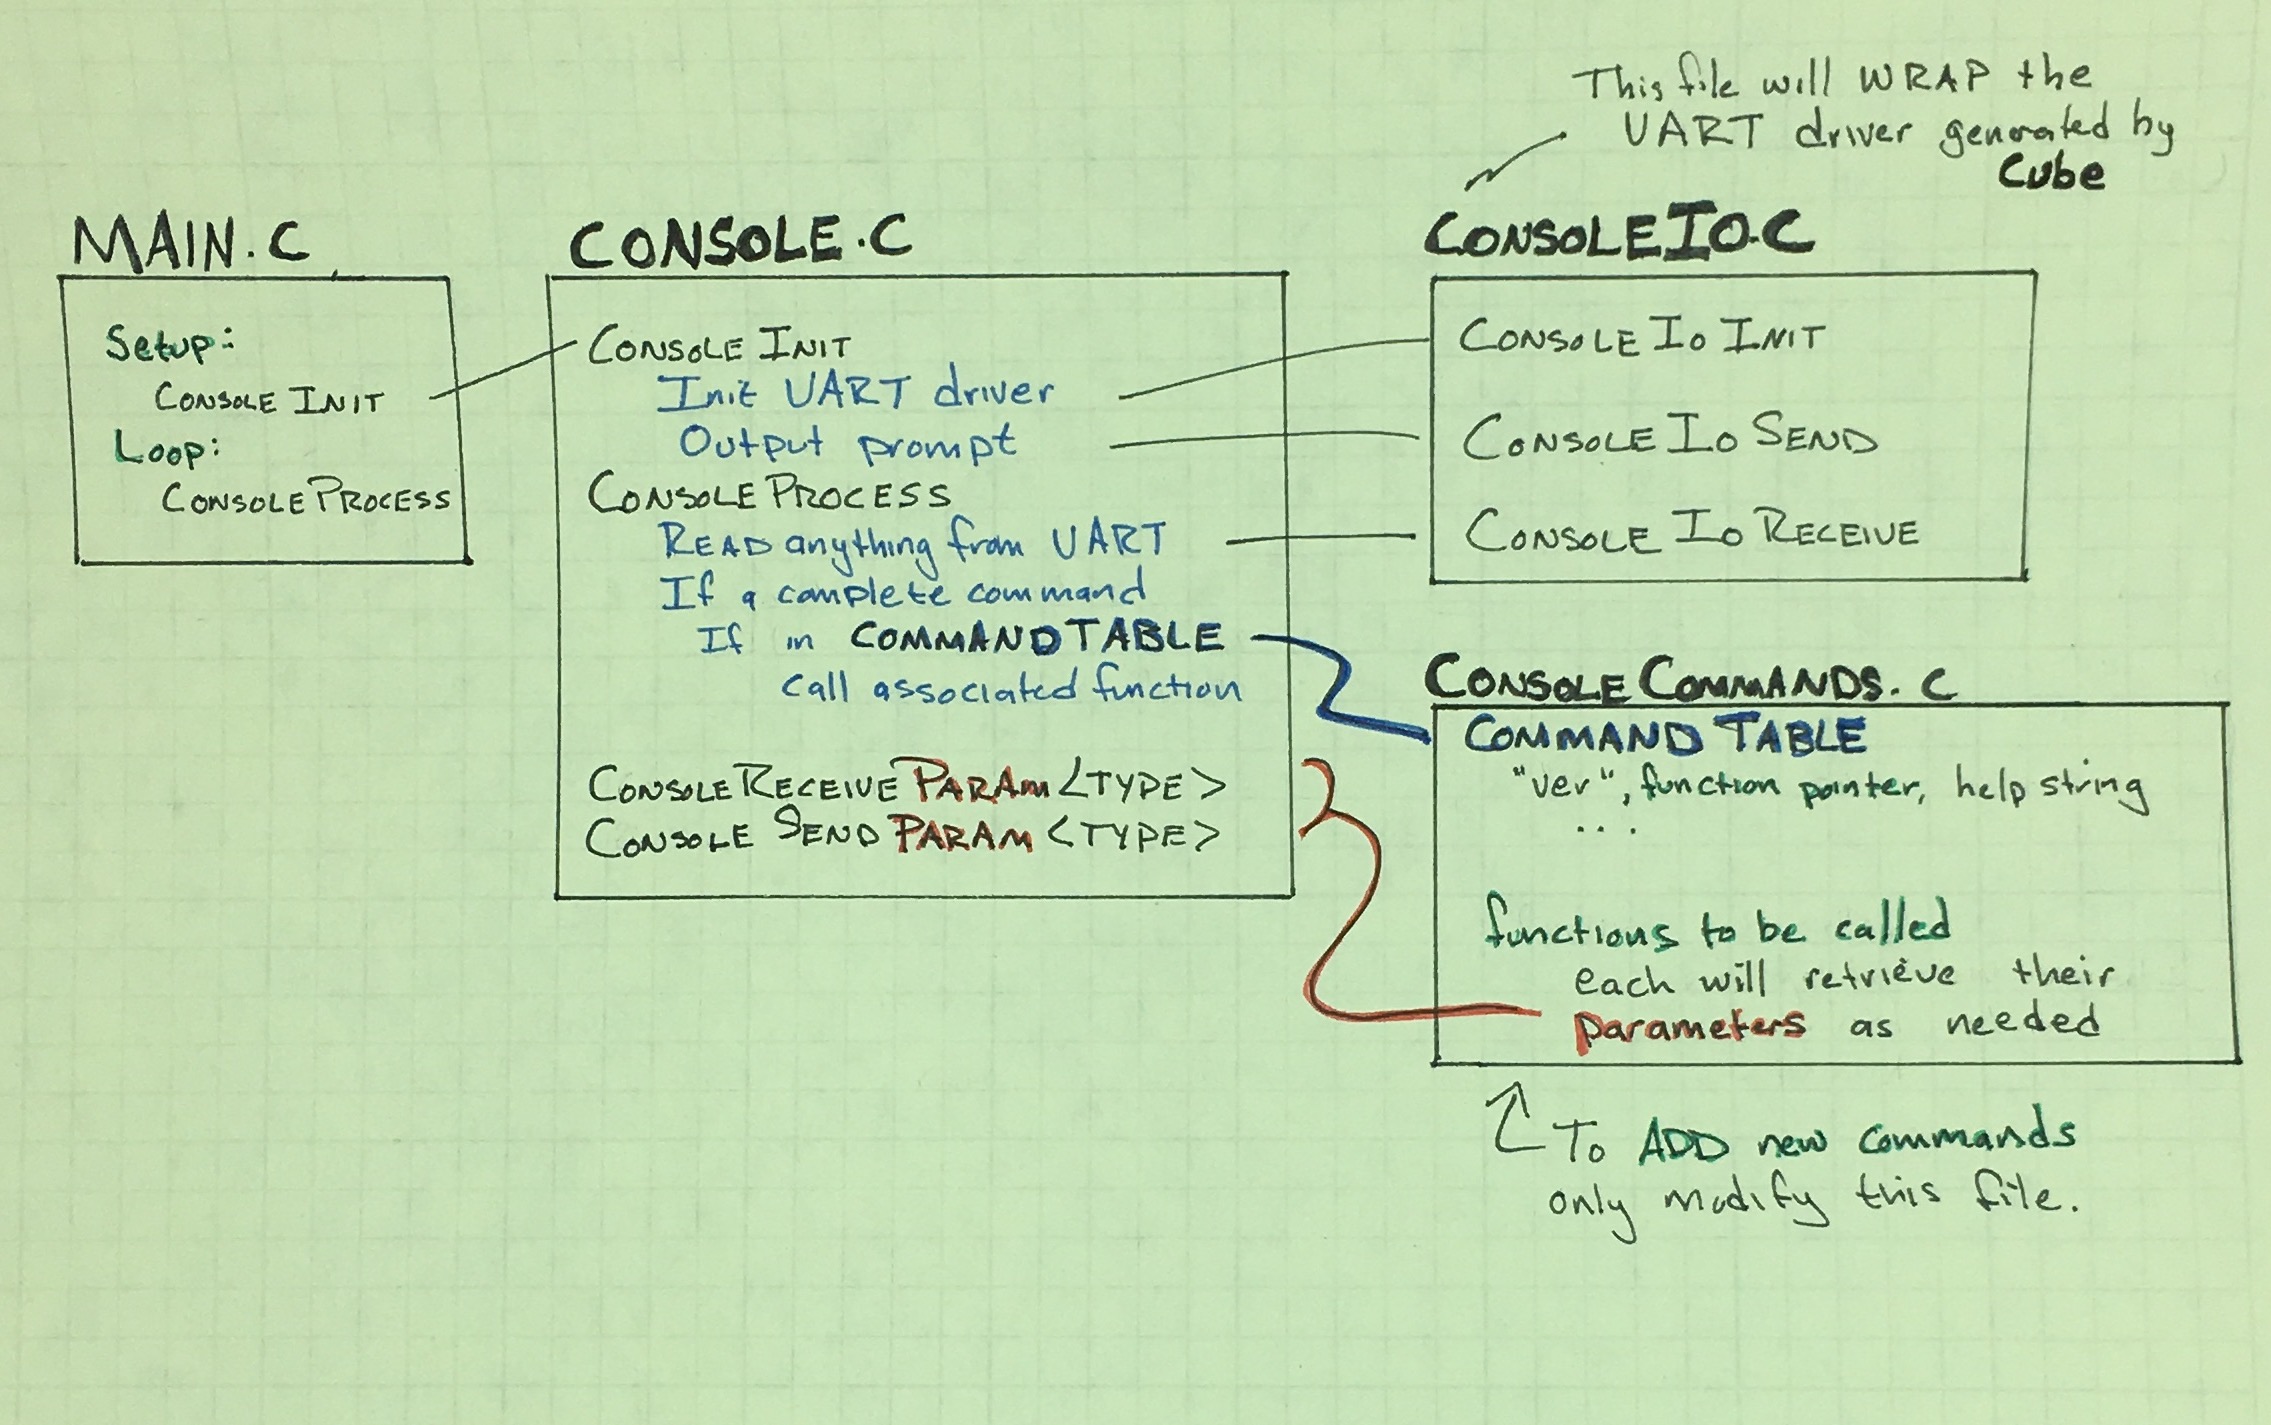 This file will WRAP the
UART driver generated by
Cube
MAIN.C
Setup:
CONSOLE INIT
Loop:
CONSOLEPROCESS
CONSOLE.C
CONSOLE INIT
Init UART driver
Output prompt
CONSOLE PROCESS
READ anything from UART
If a complete command
If in COMMAND TABLE
call associated function
CONSOLERECEIVE PARAM <TYPE>
CONSOLE SEND PARAM <TYPE>
CONSOLEIO.C
CONSOLE IO INIT
CONSOLE IO SEND
CONSOLE IO RECEIVE
CONSOLE COMMANDS.C
COMMAND TABLE
"ver", function pointer, help string
...
functions to be called
each will retrieve their
parameters as needed
To ADD new commands
only modify this file.